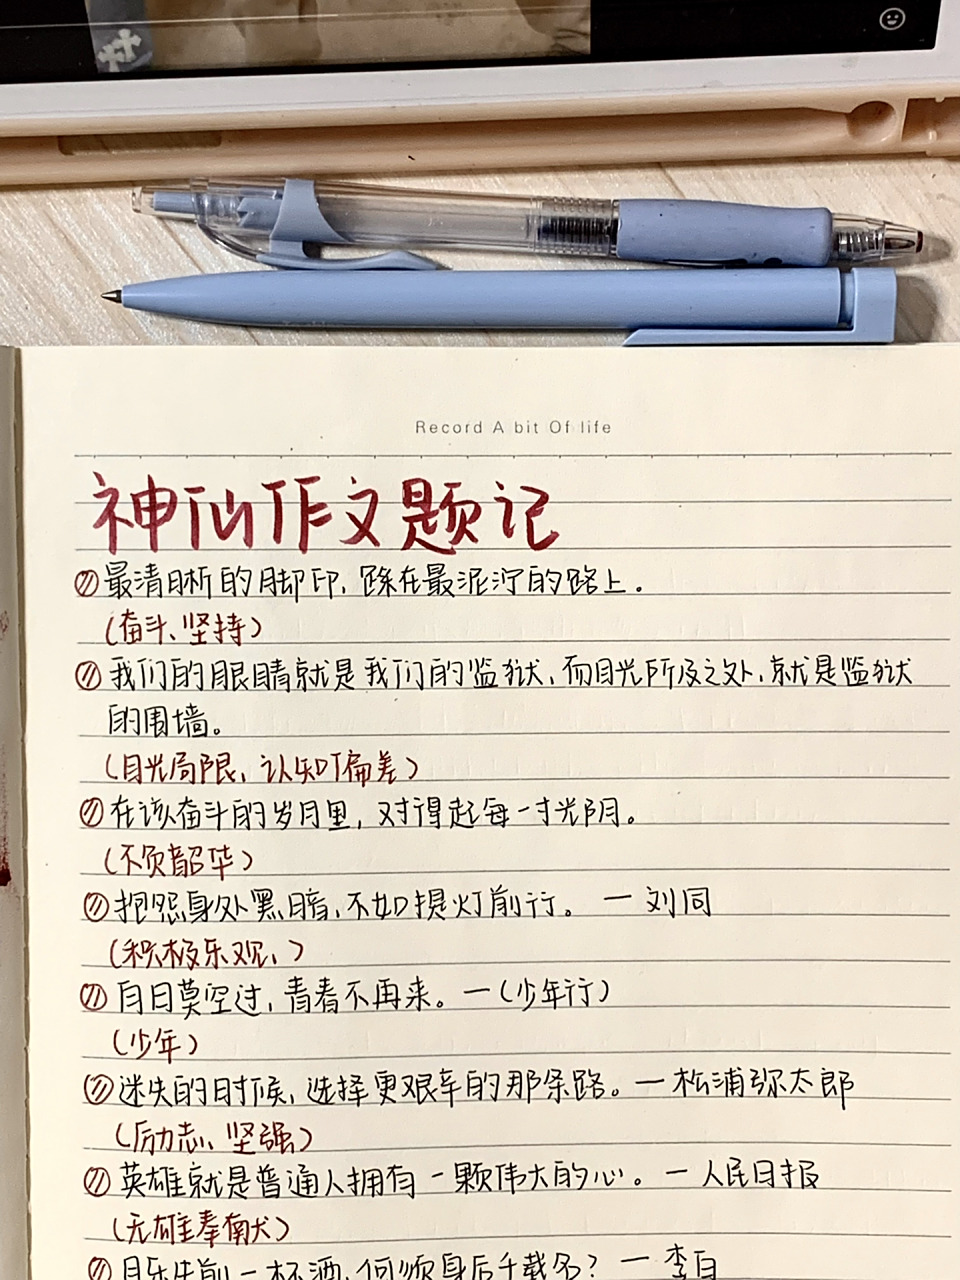 Record A bit Of life
神仙作文题记
最清晰的脚印，踩在最泥泞的路上。
(奋斗、坚持)
我们的眼睛就是我们的监狱，而目光所及之处，就是监狱
的围墙。
(目光局限，认知偏差)
在该奋斗的岁月里，对得起每一寸光阴。
(不负韶华)
抱怨身处黑暗，不如提灯前行。一刘同
(积极乐观、)
白日莫空过，青春不再来。一(少年行)
(少年)
迷失的时候，选择更艰辛的那条路。一松浦弥太郎
(励志、坚强)
英雄就是普通人拥有一颗伟大的心。一人民日报
(无雄奉献)
且乐生前一杯酒，何须身后千载名？一李白